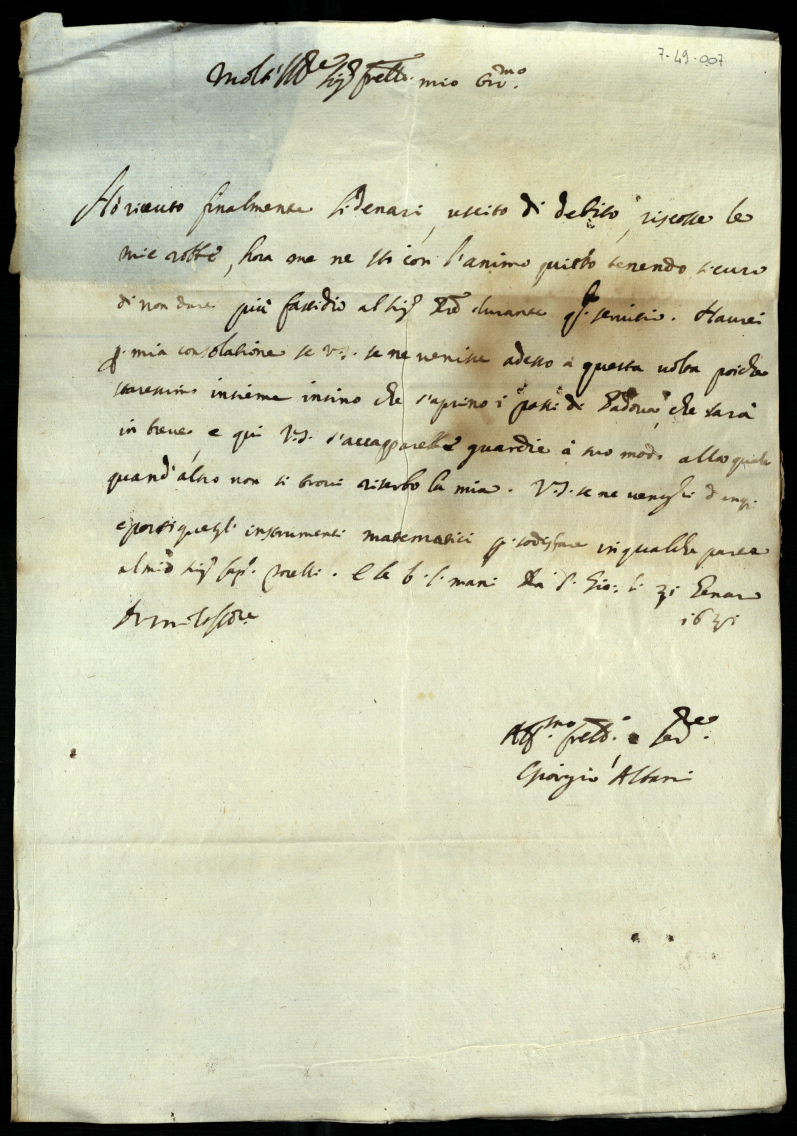 7-49-007
Molt' Ill.re Sig.r fratello mio Oss.mo
Hò riceuto finalmente li denari, uscito di debito, riscosse le
mie robbe, hora me ne sto con l'animo quieto tenendo sicuro
di non dare più fastidio al Sig.r durante q.to seruitio. Haurei
p. mia consolatione se V.S. se ne venisse adesso à questa uolta poiche
staressimo insieme insino che s'aprino i passi di Padoua, che sarà
in breue, e qui V.S. s'accapparebbe guardie à suo modo alla quale
quand'altro non si troui riserbo la mia. V.S. se ne uenghi
e porti quegl' instrumenti matematici p. sodisfare in qualche parte
al mio Sig.r Cap.o . E le b. l. mani Da S. Gio: li 31 Genaro
1631
Aff.mo fratello e ser.re
Giorgio Albani